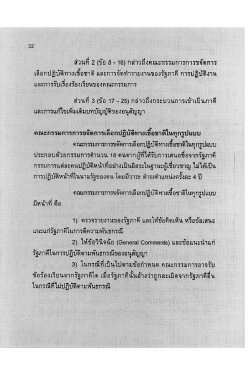 32
ส่วนที่ 2 (ข้อ 8 - 16) กล่าวถึงคณะกรรมการการขจัดการ
เลือกปฏิบัติทางเชื้อชาติ และการจัดทำรายงานของรัฐภาคี การปฏิบัติงาน
และการรับเรื่องร้องเรียนของคณะกรรมการ
ส่วนที่ 3 (ข้อ 17 - 25) กล่าวถึงกระบวนการเข้าเป็นภาคี
และการแก้ไขเพิ่มเติมบทบัญญัติของอนุสัญญา
คณะกรรมการการขจัดการเลือกปฏิบัติทางเชื้อชาติในทุกรูปแบบ
คณะกรรมการการขจัดการเลือกปฏิบัติทางเชื้อชาติในทุกรูปแบบ
ประกอบด้วยกรรมการจำนวน 18 คนจากผู้ที่ได้รับการเสนอชื่อจากรัฐภาคี
กรรมการแต่ละคนปฏิบัติหน้าที่อย่างเป็นอิสระในฐานะผู้เชี่ยวชาญ ไม่ได้เป็น
การปฏิบัติหน้าที่ในนามรัฐของตน โดยมีวาระ ดำรงตำแหน่งครั้งละ 4 ปี
คณะกรรมการการขจัดการเลือกปฏิบัติทางเชื้อชาติในทุกรูปแบบ
มีหน้าที่ คือ
1) ตรวจรายงานของรัฐภาคี และให้ข้อคิดเห็น หรือข้อเสนอ
แนะแก่รัฐภาคีในการตีความพันธกรณี
2) ให้ข้อวินิจฉัย (General Comments) และข้อแนะนำแก่
รัฐภาคีในการปฏิบัติตามพันธกรณีของอนุสัญญา
3) ในกรณีที่เป็นไปตามข้อกำหนด คณะกรรมการอาจรับ
ข้อร้องเรียนจากรัฐภาคีใด เมื่อรัฐภาคีนั้นอ้างว่าถูกละเมิดจากรัฐภาคีอื่น
ในกรณีที่ไม่ปฏิบัติตามพันธกรณี